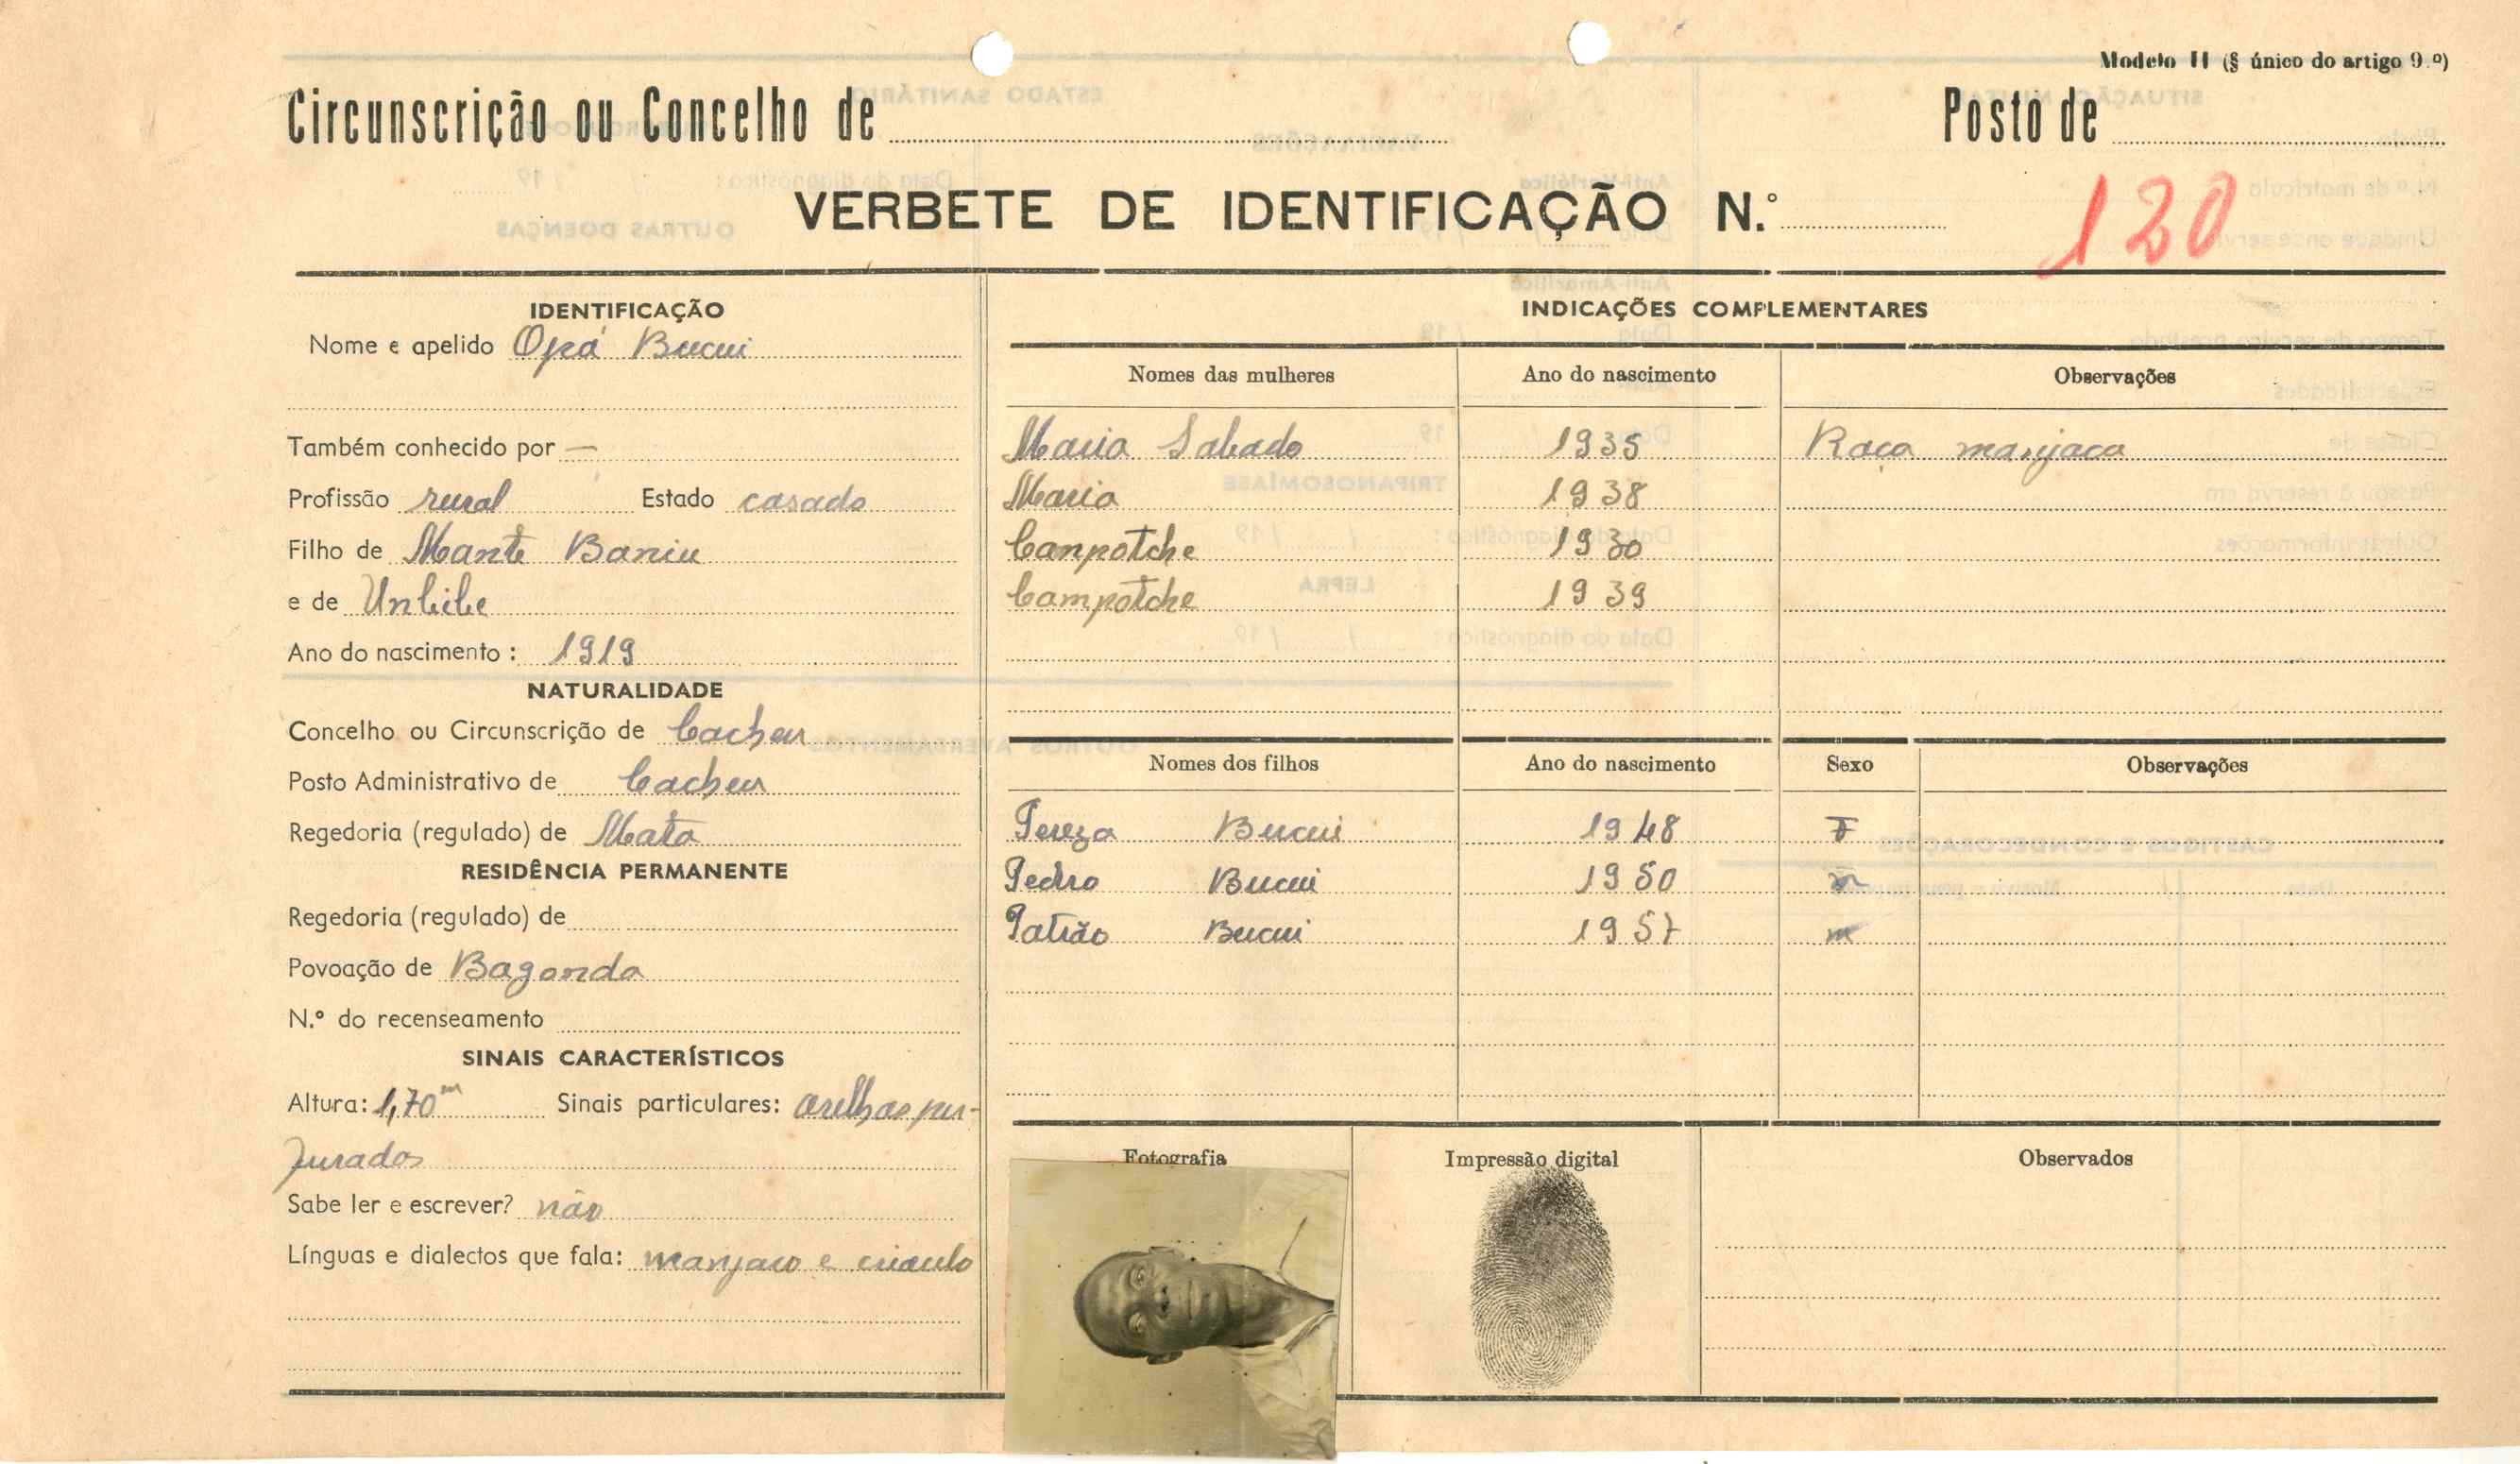 Modelo II (§ único do artigo 9.º)
Circunscrição ou Concelho de Posto de
VERBETE DE IDENTIFICAÇÃO N.º 120
IDENTIFICAÇÃO
Nome e apelido Opá Bucui
Também conhecido por —
Profissão rural Estado casado
Filho de Mante Baniu
e de Unbibe
Ano do nascimento : 1919
NATURALIDADE
Concelho ou Circunscrição de Cacheu
Posto Administrativo de Cacheu
Regedoria (regulado) de Mata
RESIDÊNCIA PERMANENTE
Regedoria (regulado) de
Povoação de Baganda
N.º do recenseamento
SINAIS CARACTERÍSTICOS
Altura: 1,70m Sinais particulares: orelhas per-
furados
Sabe ler e escrever? não
Línguas e dialectos que fala: manjaco e crioulo
INDICAÇÕES COMPLEMENTARES
Nomes das mulheres Ano do nascimento Observações
Maria Sabado 1935 Raça manjaca
Maria 1938
Canpotche 1930
Campotche 1939
Nomes dos filhos Ano do nascimento Sexo Observações
Tereza Bucui 1948 F
Pedro Bucui 1950 m
Patrão Bucui 1957 m
Fotografia Impressão digital Observados